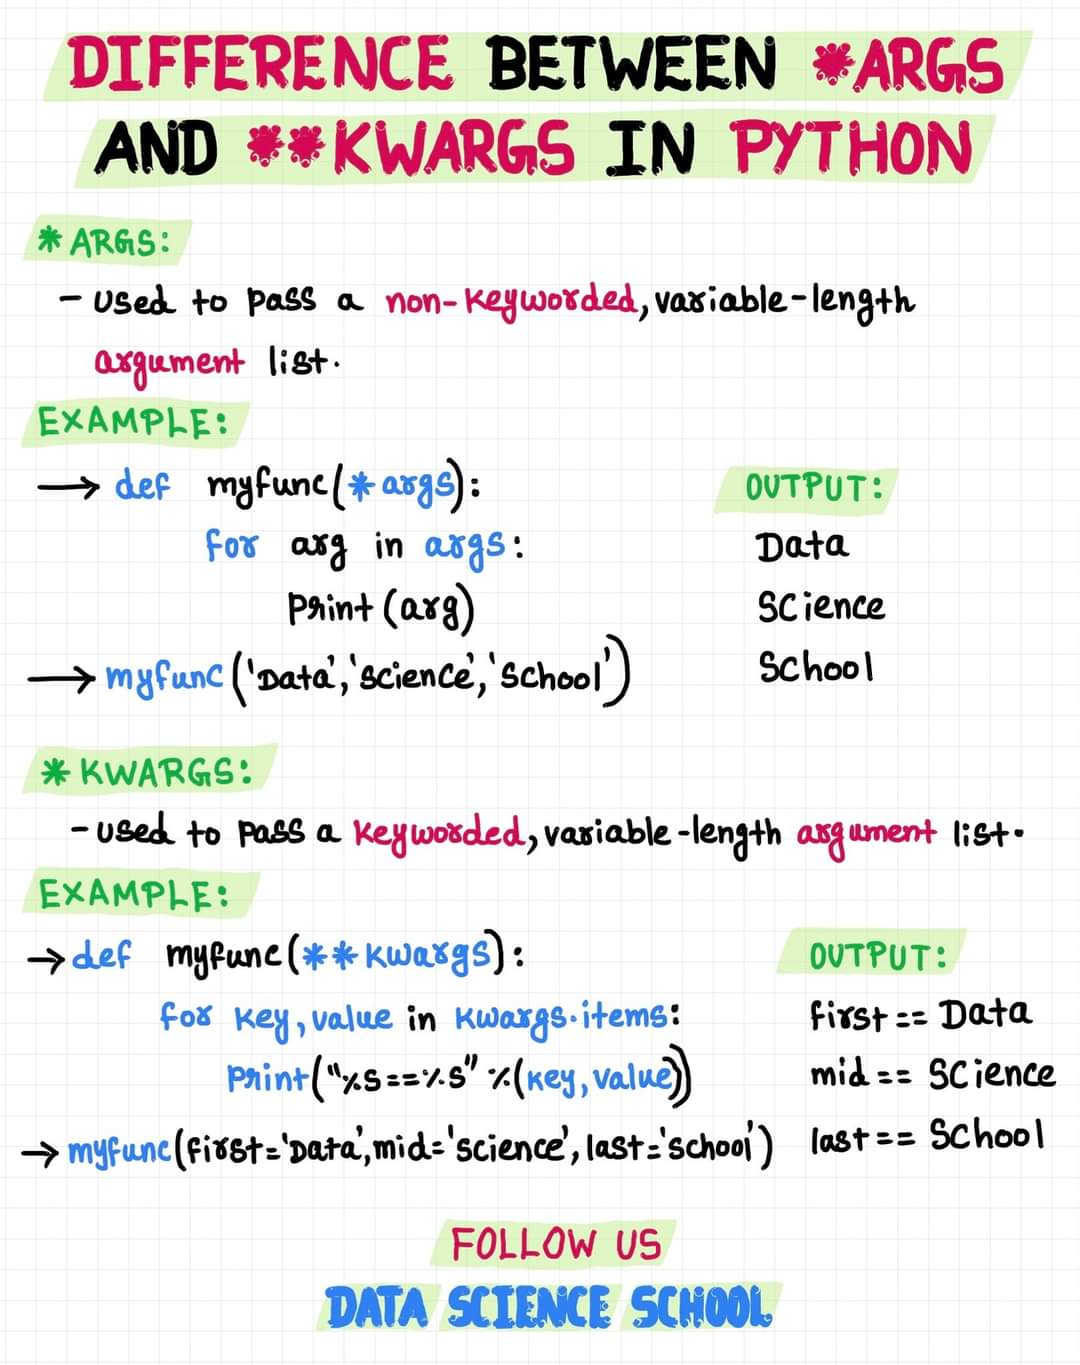 DIFFERENCE BETWEEN *ARGS
AND **KWARGS IN PYTHON
* ARGS:
- used to pass a non-keyworded, variable-length
argument list.
EXAMPLE:
→ def myfunc(*args):
for arg in args:
print(arg)
→ myfunc('Data','science','School')
OUTPUT:
Data
Science
School
* KWARGS:
- used to pass a keyworded, variable-length argument list.
EXAMPLE:
→ def myfunc(**kwargs):
for key, value in kwargs.items:
print("%s==%s" %(key, value))
→ myfunc(first='Data', mid='science', last='school')
OUTPUT:
first == Data
mid == Science
last == School
FOLLOW US
DATA SCIENCE SCHOOL